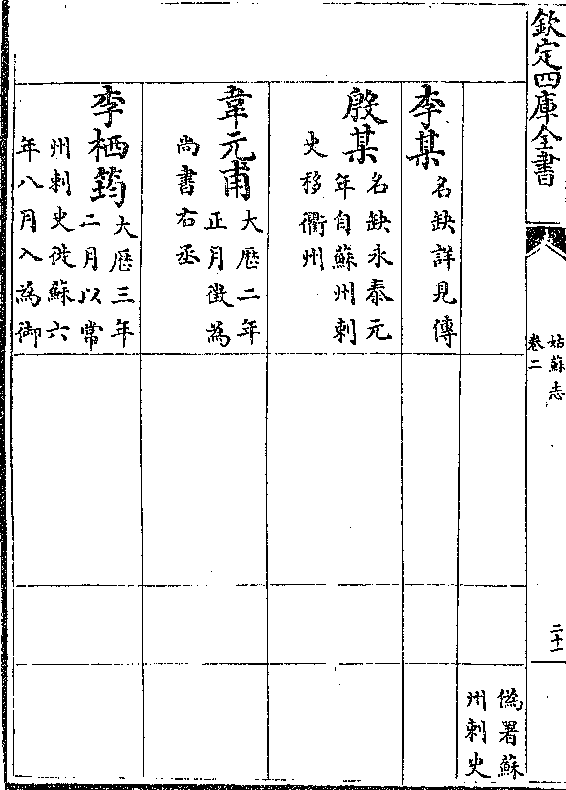 欽定四庫全書
姑蘇志
卷二
二十一
僞署蘇
州刺史
李某
名缺詳見傳
殷某
名缺永泰元
年自蘇州刺
史移衢州
韋元甫
大厯二年
正月徴為
尚書右丞
李栖筠
大厯三年
二月以常
州刺史徙蘇六
年八月入為御